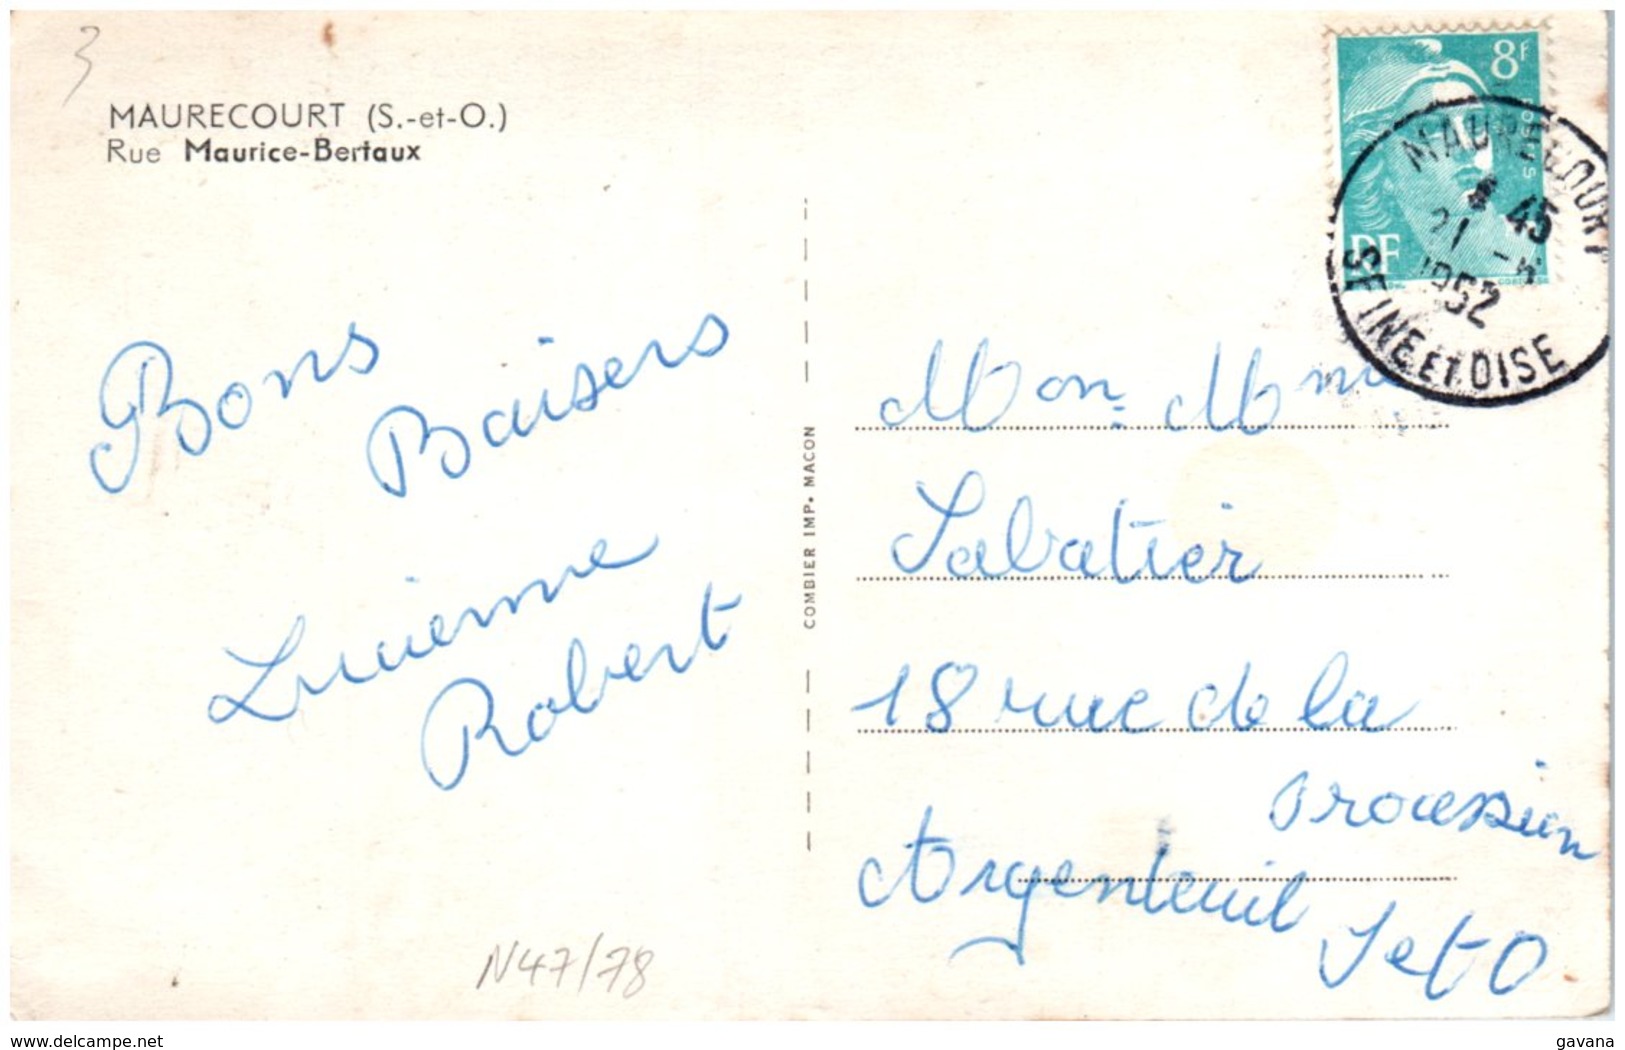 3
MAURECOURT (S.-et-O.)
Rue Maurice-Bertaux
Bons
Baisers
Lucienne
Robert
N47/78
COMBIER IMP. MACON
8F
POSTES
RF
MAURECOURT
45
21 -
1952
SEINE ET OISE
Mon. Mme
Sabatier
18 rue de la
Procession
Argenteuil
S et O
delcampe.net
gavana